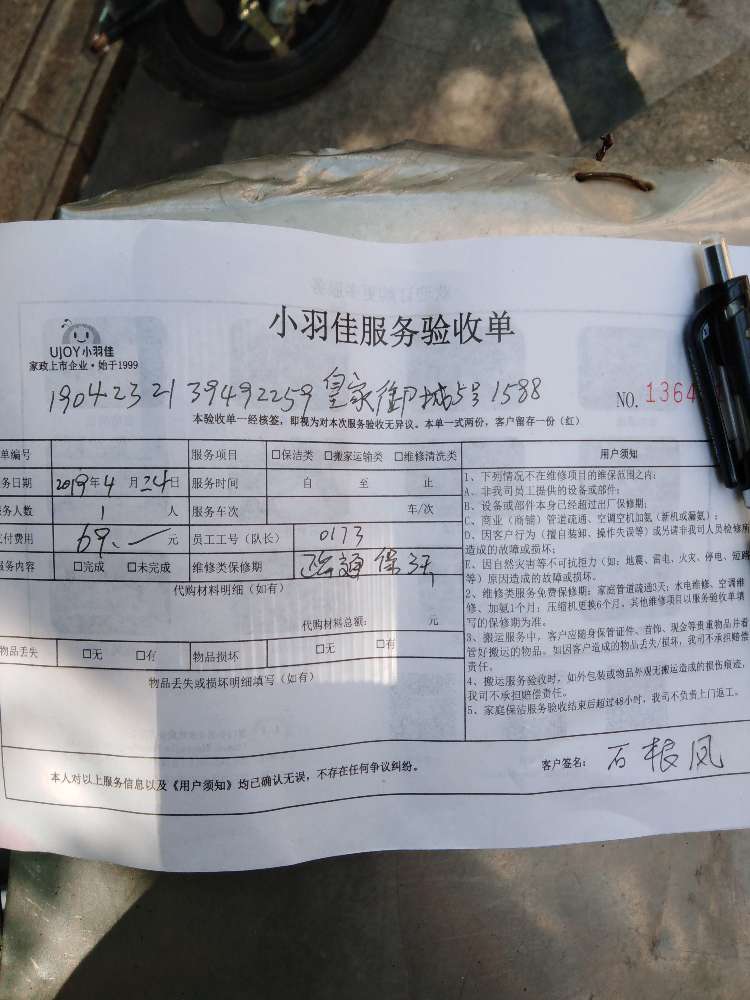 小羽佳服务验收单
UJOY小羽佳
家政上市企业·始于1999
1904232139492259皇家御城5号1588
NO. 1364
本验收单一经核签，即视为对本次服务验收无异议。本单一式两份，客户留存一份（红）
单编号 服务项目 □保洁类 □搬家运输类 □维修清洗类
务日期 2019年4月24日 服务时间 自 至 止
务人数 1 人 服务车次 车/次
付费用 69.— 元 员工工号（队长） 0173
服务内容 □完成 □未完成 维修类保修期 通 保3天
代购材料明细（如有）
代购材料总额： 元
物品丢失 □无 □有 物品损坏 □无 □有
物品丢失或损坏明细填写（如有）
用户须知
1、下列情况不在维修项目的维保范围之内：
A、非我司员工提供的设备或部件；
B、设备或部件本身已经超过出厂保修期；
C、商业（商铺）管道疏通、空调空机加氨（新机或漏氨）；
D、因客户行为（擅自装卸、操作失误等）或另请非我司人员检修所
造成的故障或损坏；
E、因自然灾害等不可抗拒力（如：地震、雷电、火灾、停电、短路
等）原因造成的故障或损坏。
2、维修类服务免费保修期：家庭管道疏通3天；水电维修、空调维
修、加氨1个月；压缩机更换6个月，其他维修项目以服务验收单填
写的保修期为准。
3、搬运服务中，客户应随身保管证件、首饰、现金等贵重物品并看
管好搬运的物品。如因客户造成的物品丢失/损坏，我司不承担赔偿
责任。
4、搬运服务验收时，如外包装或物品外观无搬运造成的损伤痕迹，
我司不承担赔偿责任。
5、家庭保洁服务验收结束后超过48小时，我司不负责上门返工。
本人对以上服务信息以及《用户须知》均已确认无误，不存在任何争议纠纷。
客户签名： 石根凤